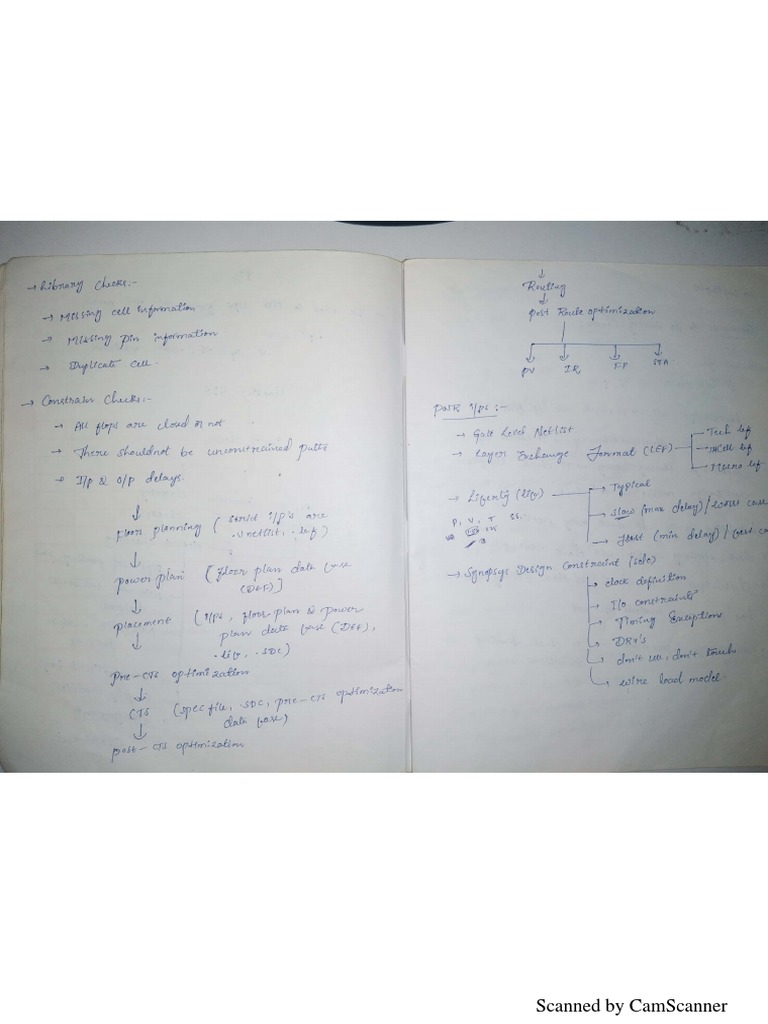 → Library Checks:-
→ Missing cell information
→ Missing pin information
→ Duplicate cell.
→ Constrain Checks:-
→ All flops are cloud or not
→ There should not be unconstrained paths
→ I/p & O/p delays.
↓
floor planning ( strict i/p's are
.v netlist, .lef)
↓
power plan [floor plan data base
(DEF)]
↓
placement (i/ps, floor plan & power
↓ plan data base (DEF),
.lib, .SDC)
Pre-CTS optimization
↓
CTS (spec file, .SDC, pre-CTS optimization
↓ data base)
post-CTS optimization
↓
Routing
↓
post Route optimization
PV IR STA
PNR i/ps:-
→ Gate Level Netlist
→ Layer Exchange Format (LEF) → Tech lef
→ Cell lef
→ Macro lef
→ Liberty (lib) → Typical
P, V, T
→ slow (max delay) / worst case
→ fast (min delay) /
→ Synopsys Design Constraint (sdc)
→ clock definition
→ I/o constraints
→ Timing Exception
→ DRV's
→ don't use, don't touch
wire load model.
Scanned by CamScanner